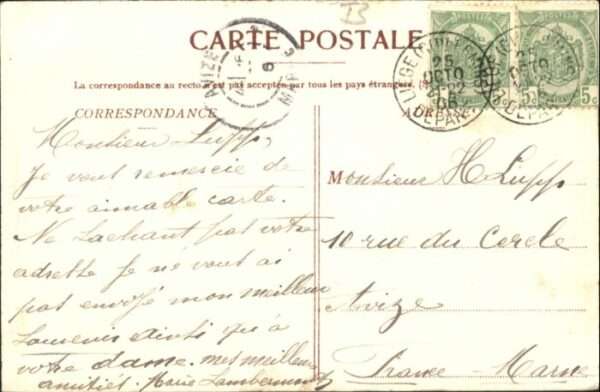 I3
CARTE POSTALE
AVIZE
MARNE
LIEGE (GUILLEMINS)
25
OCTO
1906
DEPART
5c
5c
La correspondance au recto n'est pas acceptée par tous les pays étrangers.
CORRESPONDANCE
Monsieur Lupp,
Je vous remercie de
votre aimable carte.
Ne sachant pas votre
adresse je ne vous ai
pas envoyé mon meilleur
souvenir ainsi qu'à
votre dame. mes meilleurs
amitiés. Marie Lambermont
Monsieur H Lupp
10 rue du Cercle
Avize
France - Marne